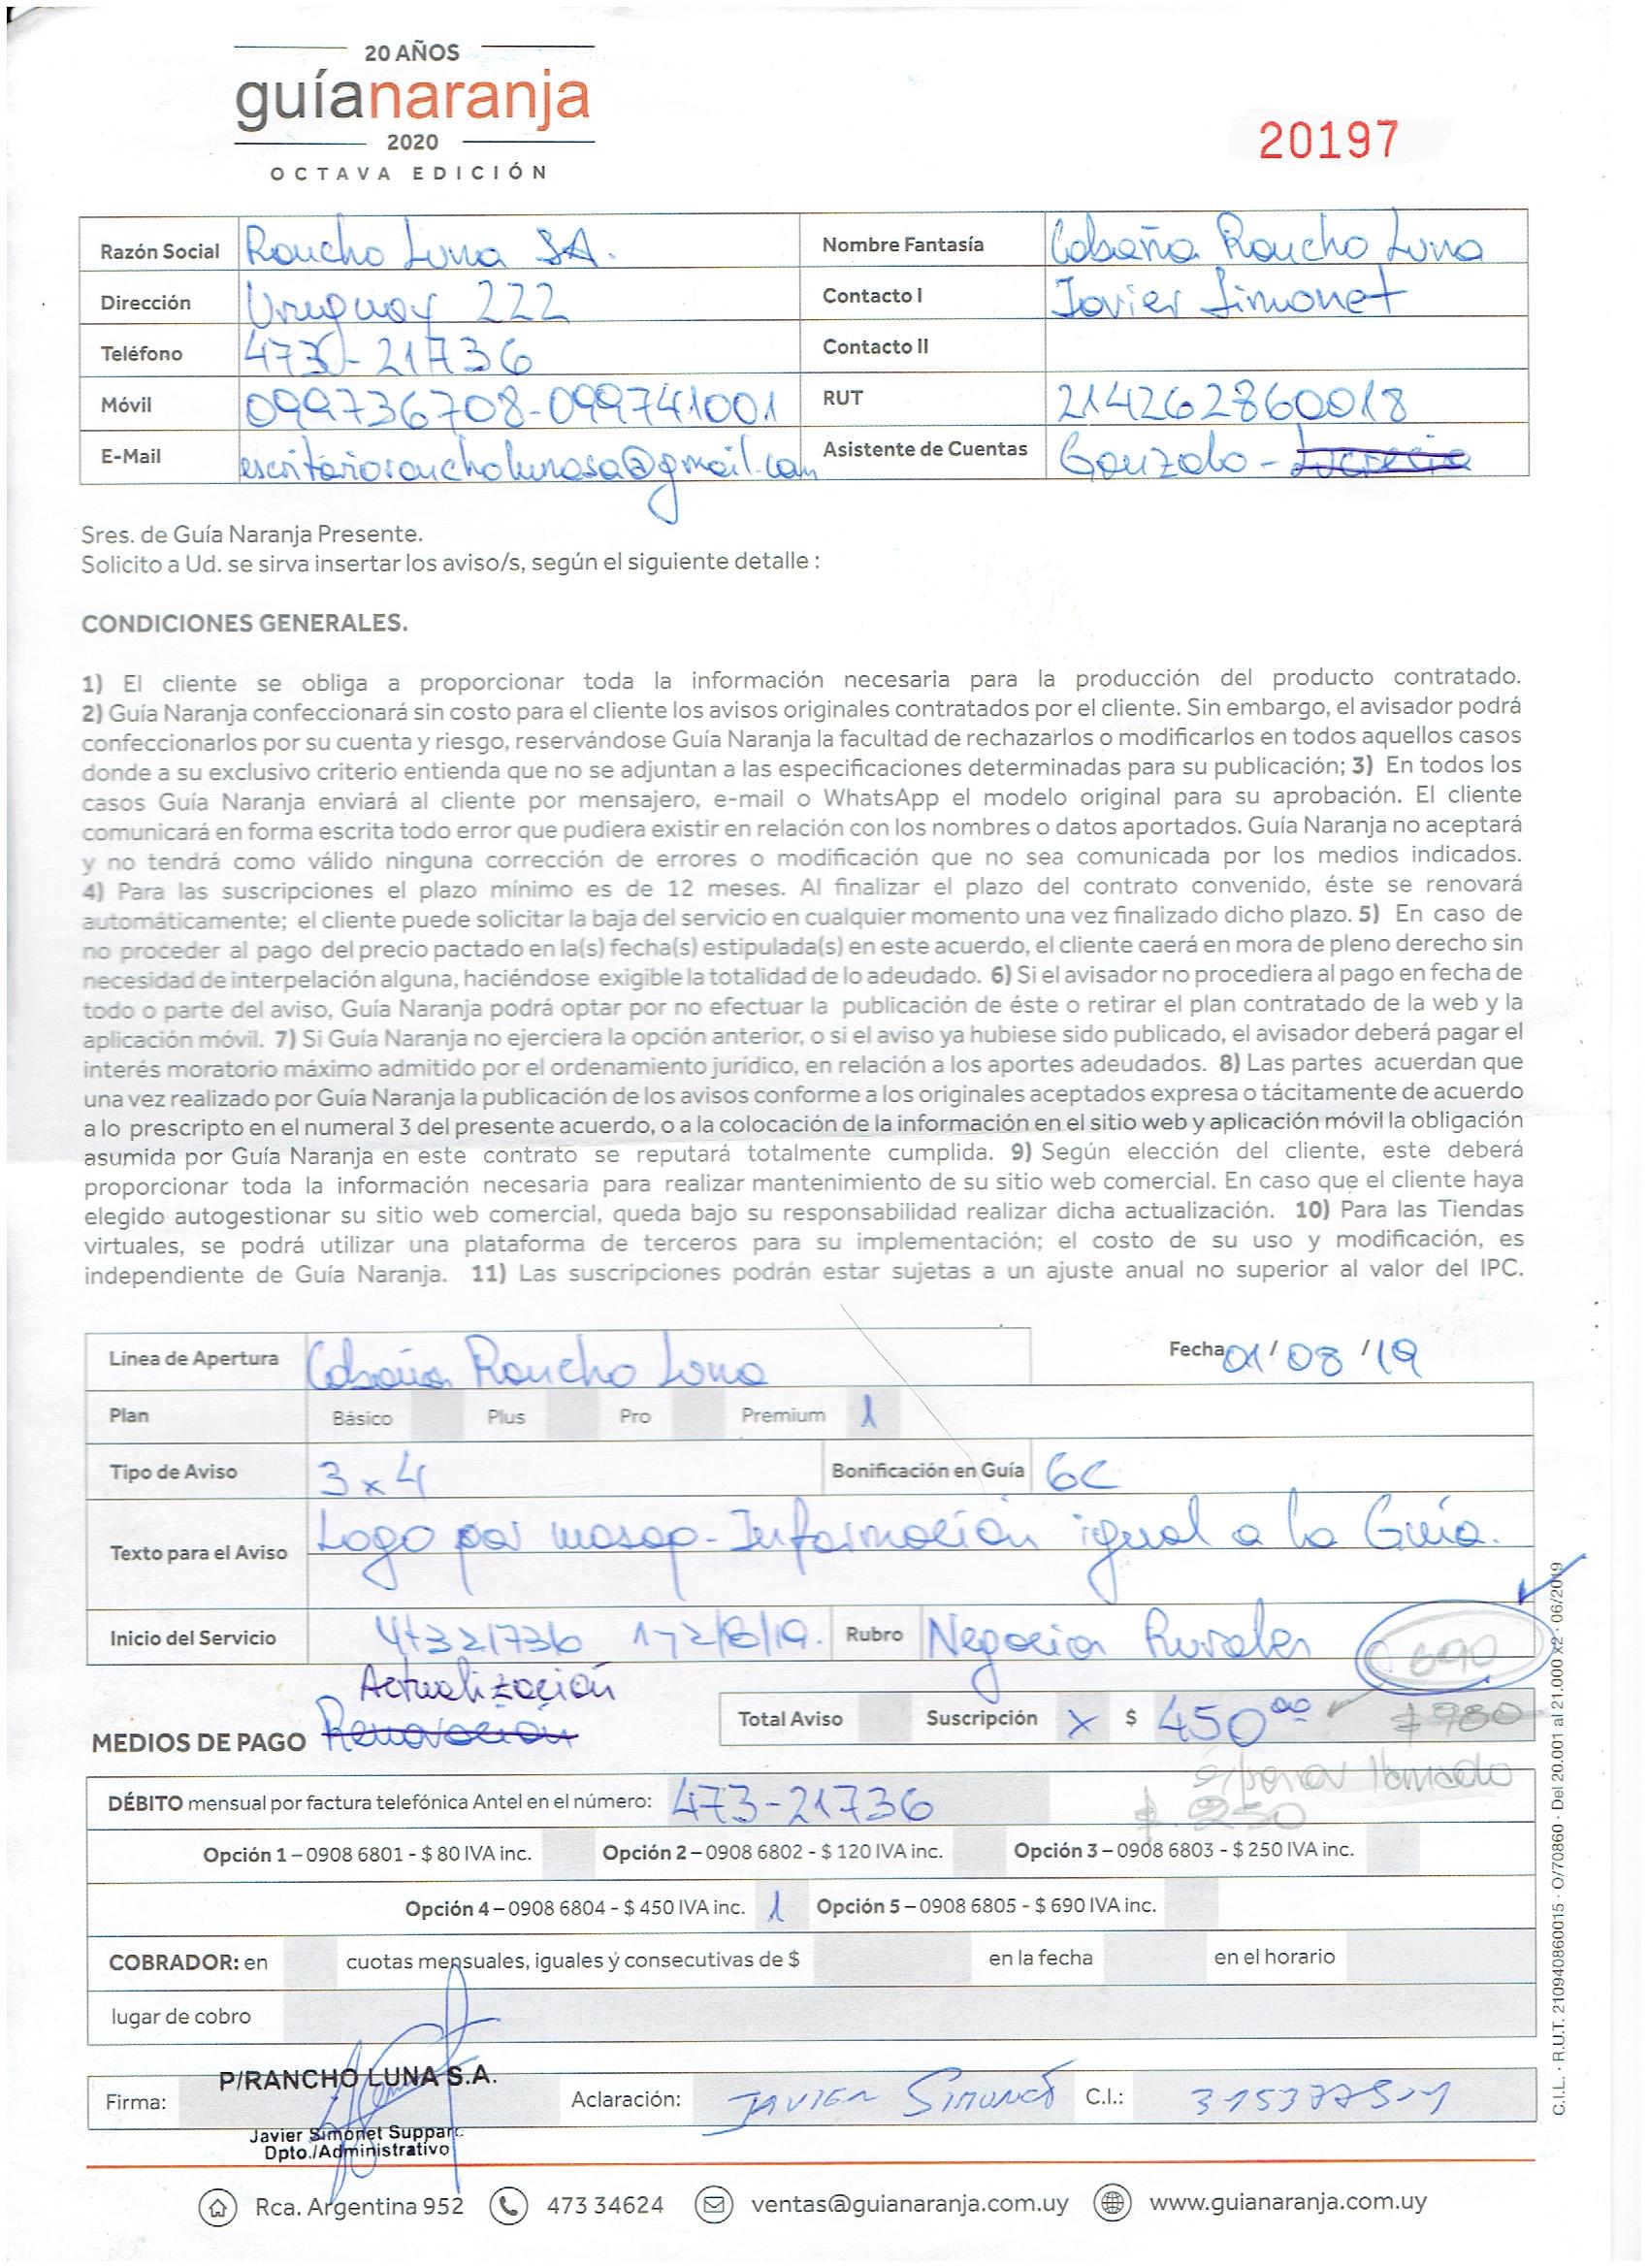 20 AÑOS
guíanaranja
2020
OCTAVA EDICIÓN
20197
Razón Social Rancho Luna SA. Nombre Fantasía Cabaña Rancho Luna
Dirección Uruguay 222 Contacto I Javier Simonet
Teléfono 473-21736 Contacto II
Móvil 099736708-099741001 RUT 214262860018
E-Mail escritorioroncholunasa@gmail.com Asistente de Cuentas Gonzalo - Lucrecia
Sres. de Guía Naranja Presente.
Solicito a Ud. se sirva insertar los aviso/s, según el siguiente detalle :
CONDICIONES GENERALES.
1) El cliente se obliga a proporcionar toda la información necesaria para la producción del producto contratado.
2) Guía Naranja confeccionará sin costo para el cliente los avisos originales contratados por el cliente. Sin embargo, el avisador podrá
confeccionarlos por su cuenta y riesgo, reservándose Guía Naranja la facultad de rechazarlos o modificarlos en todos aquellos casos
donde a su exclusivo criterio entienda que no se adjuntan a las especificaciones determinadas para su publicación; 3) En todos los
casos Guía Naranja enviará al cliente por mensajero, e-mail o WhatsApp el modelo original para su aprobación. El cliente
comunicará en forma escrita todo error que pudiera existir en relación con los nombres o datos aportados. Guía Naranja no aceptará
y no tendrá como válido ninguna corrección de errores o modificación que no sea comunicada por los medios indicados.
4) Para las suscripciones el plazo mínimo es de 12 meses. Al finalizar el plazo del contrato convenido, éste se renovará
automáticamente; el cliente puede solicitar la baja del servicio en cualquier momento una vez finalizado dicho plazo. 5) En caso de
no proceder al pago del precio pactado en la(s) fecha(s) estipulada(s) en este acuerdo, el cliente caerá en mora de pleno derecho sin
necesidad de interpelación alguna, haciéndose exigible la totalidad de lo adeudado. 6) Si el avisador no procediera al pago en fecha de
todo o parte del aviso, Guía Naranja podrá optar por no efectuar la publicación de éste o retirar el plan contratado de la web y la
aplicación móvil. 7) Si Guía Naranja no ejerciera la opción anterior, o si el aviso ya hubiese sido publicado, el avisador deberá pagar el
interés moratorio máximo admitido por el ordenamiento jurídico, en relación a los aportes adeudados. 8) Las partes acuerdan que
una vez realizado por Guía Naranja la publicación de los avisos conforme a los originales aceptados expresa o tácitamente de acuerdo
a lo prescripto en el numeral 3 del presente acuerdo, o a la colocación de la información en el sitio web y aplicación móvil la obligación
asumida por Guía Naranja en este contrato se reputará totalmente cumplida. 9) Según elección del cliente, este deberá
proporcionar toda la información necesaria para realizar mantenimiento de su sitio web comercial. En caso que el cliente haya
elegido autogestionar su sitio web comercial, queda bajo su responsabilidad realizar dicha actualización. 10) Para las Tiendas
virtuales, se podrá utilizar una plataforma de terceros para su implementación; el costo de su uso y modificación, es
independiente de Guía Naranja. 11) Las suscripciones podrán estar sujetas a un ajuste anual no superior al valor del IPC.
Línea de Apertura Cabaña Rancho Luna Fecha 01/08/19
Plan Básico Plus Pro Premium 1
Tipo de Aviso 3x4 Bonificación en Guía 6C
Texto para el Aviso Logo por wasap-Información igual a la Guía.
Inicio del Servicio 47321736 172/8/19. Rubro Negocios Rurales 690
Actualización
MEDIOS DE PAGO Renovación Total Aviso Suscripción X $ 450 00 $ 980
llamado
DÉBITO mensual por factura telefónica Antel en el número: 473-21736 $ 250
Opción 1 – 0908 6801 - $ 80 IVA inc. Opción 2 – 0908 6802 - $ 120 IVA inc. Opción 3 – 0908 6803 - $ 250 IVA inc.
Opción 4 – 0908 6804 - $ 450 IVA inc. 1 Opción 5 – 0908 6805 - $ 690 IVA inc.
COBRADOR: en cuotas mensuales, iguales y consecutivas de $ en la fecha en el horario
lugar de cobro
P/RANCHO LUNA S.A.
Firma: Aclaración: JAVIER SIMONET C.I.:
Javier Simonet Supparo
Dpto./Administrativo
Rca. Argentina 952 473 34624 ventas@guianaranja.com.uy www.guianaranja.com.uy
C.I.L. · R.U.T. 210940860015 · O/70860 · Del 20.001 al 21.000 x2 · 06/2019